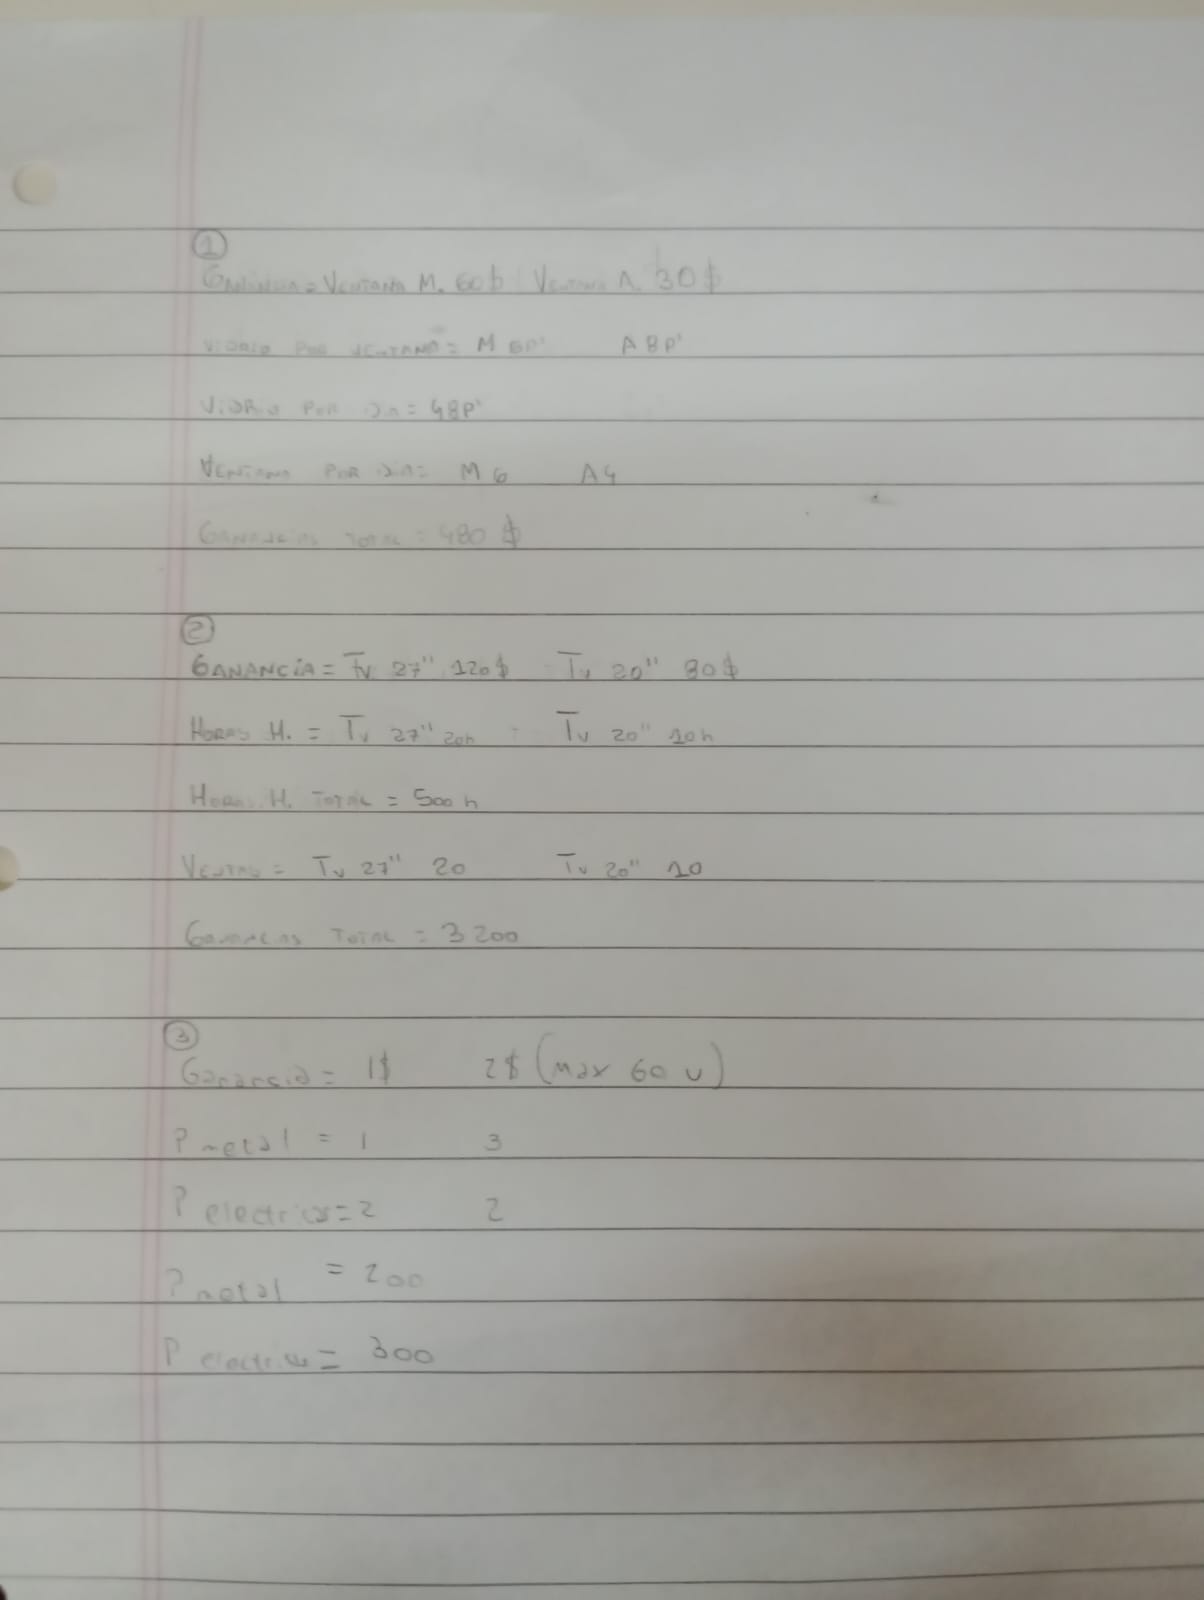 1
Ganancia = Ventana M. 60$ Ventana A. 30$
Vidrio por ventana = M 6P² A 8P²
Vidrio por dia = 48P²
Ventana por dia = M 6 A 4
Ganancias total = 480 $
2
Ganancia = Tv 27" 120$ Tv 20" 80$
Horas H. = Tv 27" 20h Tv 20" 10h
Horas H. Total = 500h
Ventas = Tv 27" 20 Tv 20" 10
Ganancias Total = 3200
3
Ganansia = 1$ 2$ (max 60 u)
P metal = 1 3
P electricas = 2 2
P metal = 200
P electricas = 300